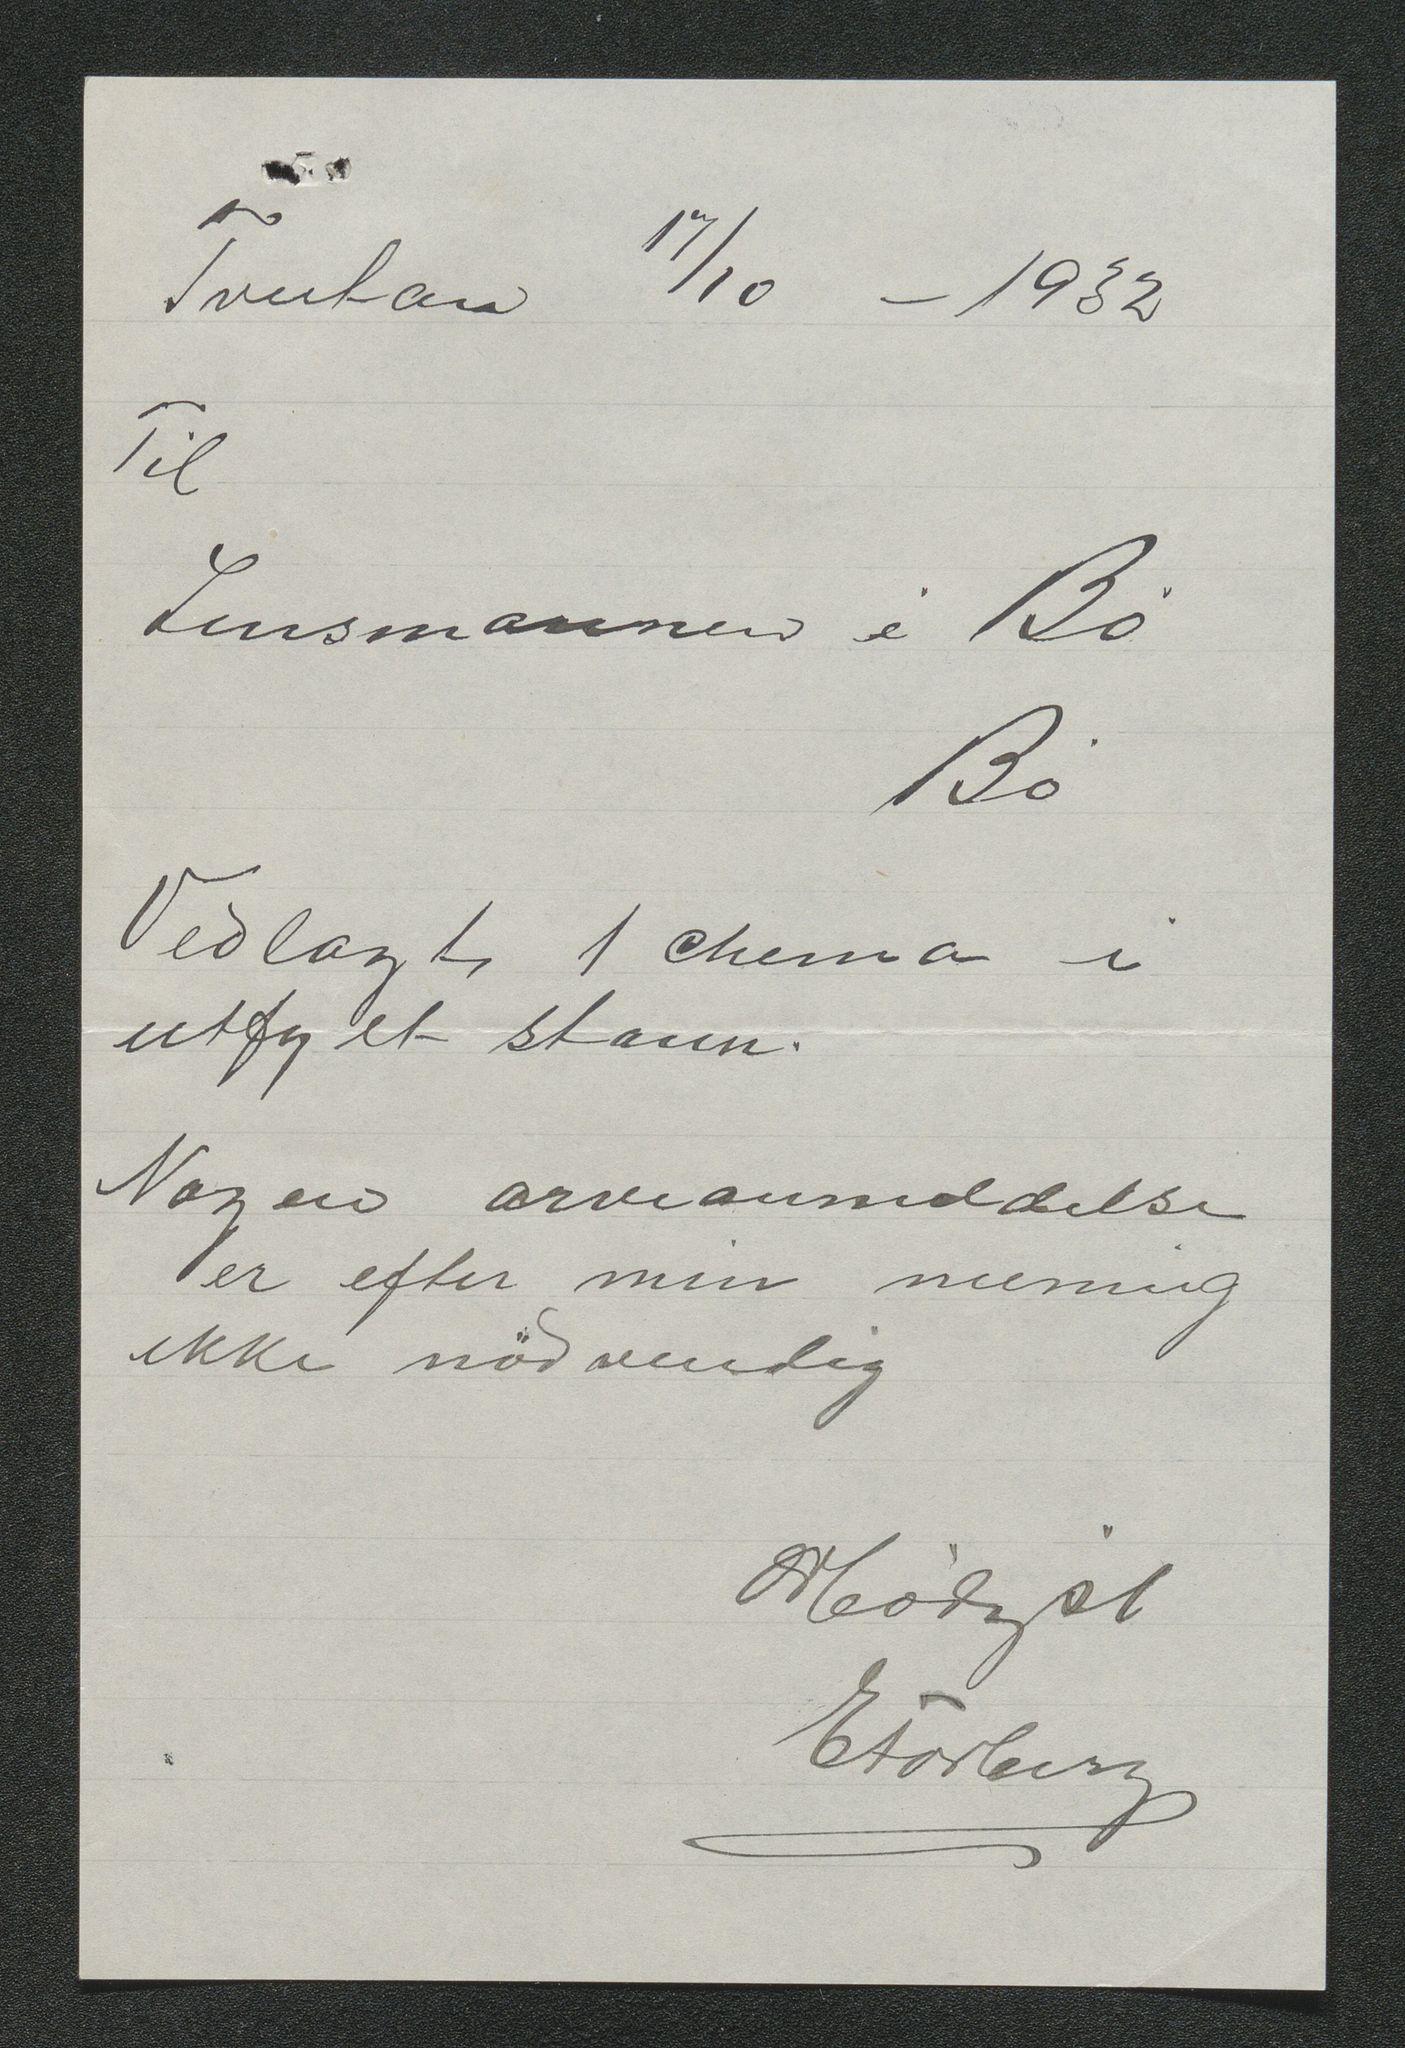 Tveitan 17/10 - 1932
Til
Lensmannen i Bö
Bö
Vedlagt, 1 chema i
utfylt stann.
Nogen arveanmeldelse
er efter min mening
ikke nödvendig
Med
E Torberg